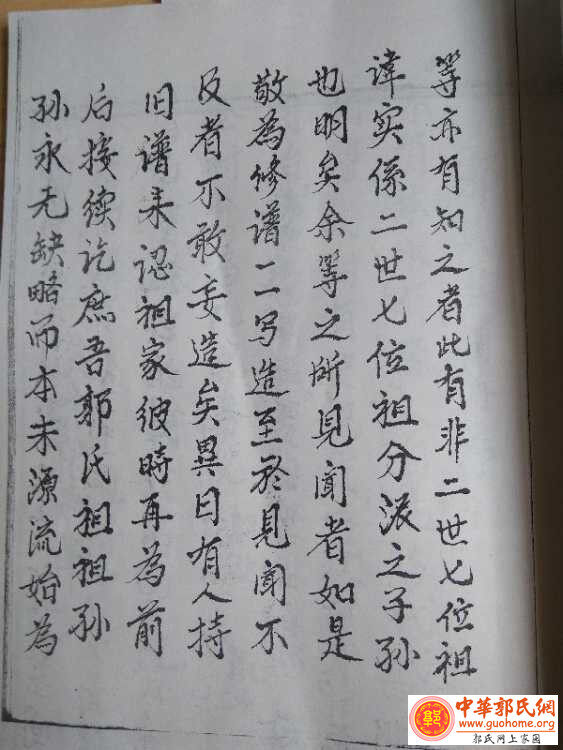 等亦有知之者此有非二世七位祖
讳实係二世七位祖分派之子孙
也明矣余等之所見闻者如是
敬為修谱二写造至於見闻不
及者不敢妄造矣異日有人持
旧谱来認祖家彼時再為前
后接续讫庶吾郭氏祖祖孙
孙永无缺略而本末源流始為
中華郭氏網
www.guohome.org
郭氏网上家园